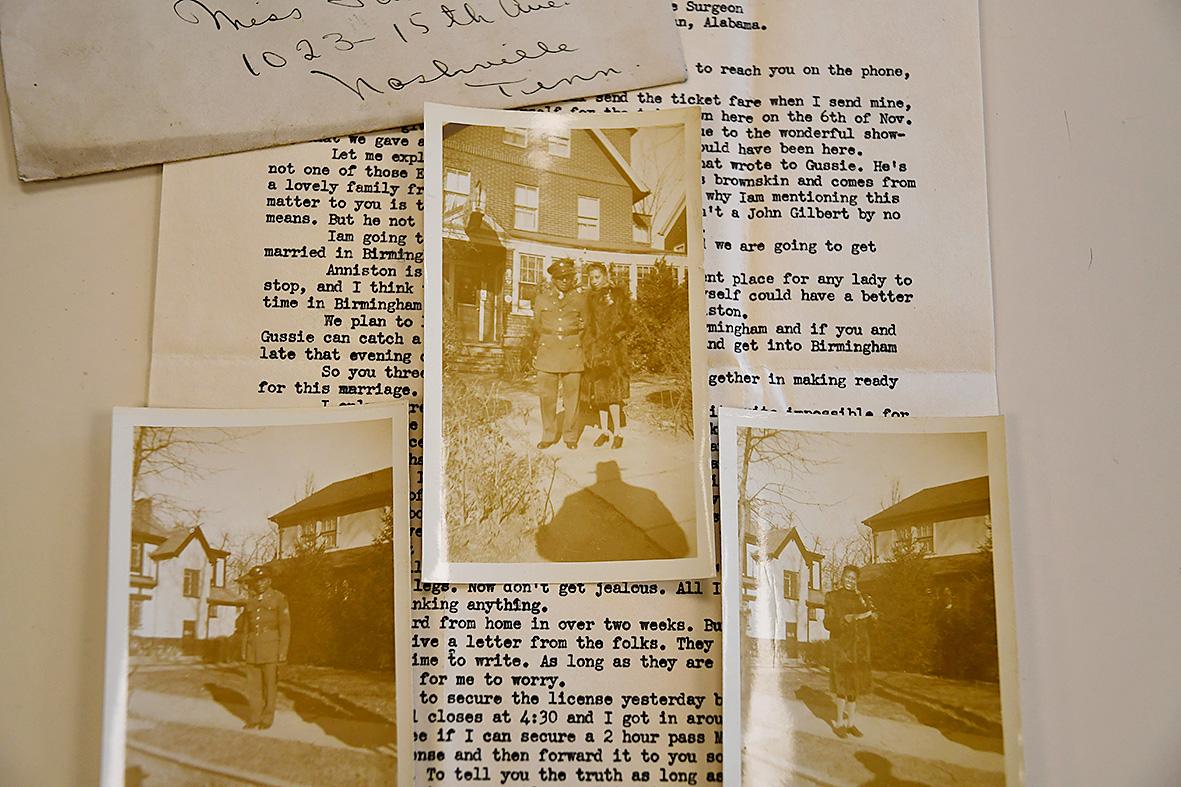 Miss
1023-15th Ave.
Nashville
Tenn.
Surgeon
n, Alabama.
to reach you on the phone,
send the ticket fare when I send mine,
n here on the 6th of Nov.
we gave a e to the wonderful show-
Let me expl ould have been here.
not one of those E hat wrote to Gussie. He's
a lovely family fr s brownskin and comes from
matter to you is t why Iam mentioning this
means. But he not n't a John Gilbert by no
Iam going t we are going to get
married in Birming
Anniston is ent place for any lady to
stop, and I think yself could have a better
time in Birmingham iston.
We plan to rmingham and if you and
Gussie can catch a nd get into Birmingham
late that evening
So you three gether in making ready
for this marriage.
I only quite impossible for
legs. Now don't get jealous. All I
nking anything.
rd from home in over two weeks. Bu
ive a letter from the folks. They
ime to write. As long as they are
for me to worry.
to secure the license yesterday b
l closes at 4:30 and I got in arou
e if I can secure a 2 hour pass M
nse and then forward it to you so
To tell you the truth as long as